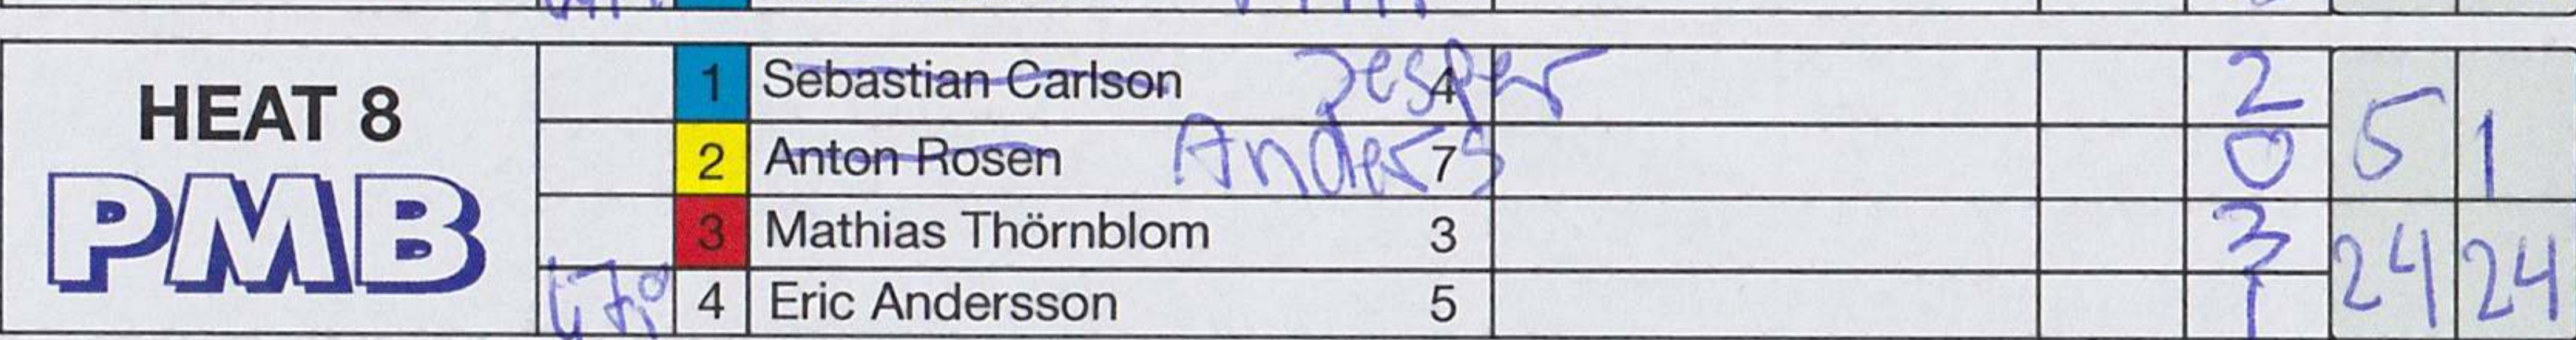 HEAT 8
PMB
1 Sebastian Carlson 4 Jesper 2
2 Anton Rosen 7 Anders 0 5 1
3 Mathias Thörnblom 3 3
4 Eric Andersson 5 1 24 24